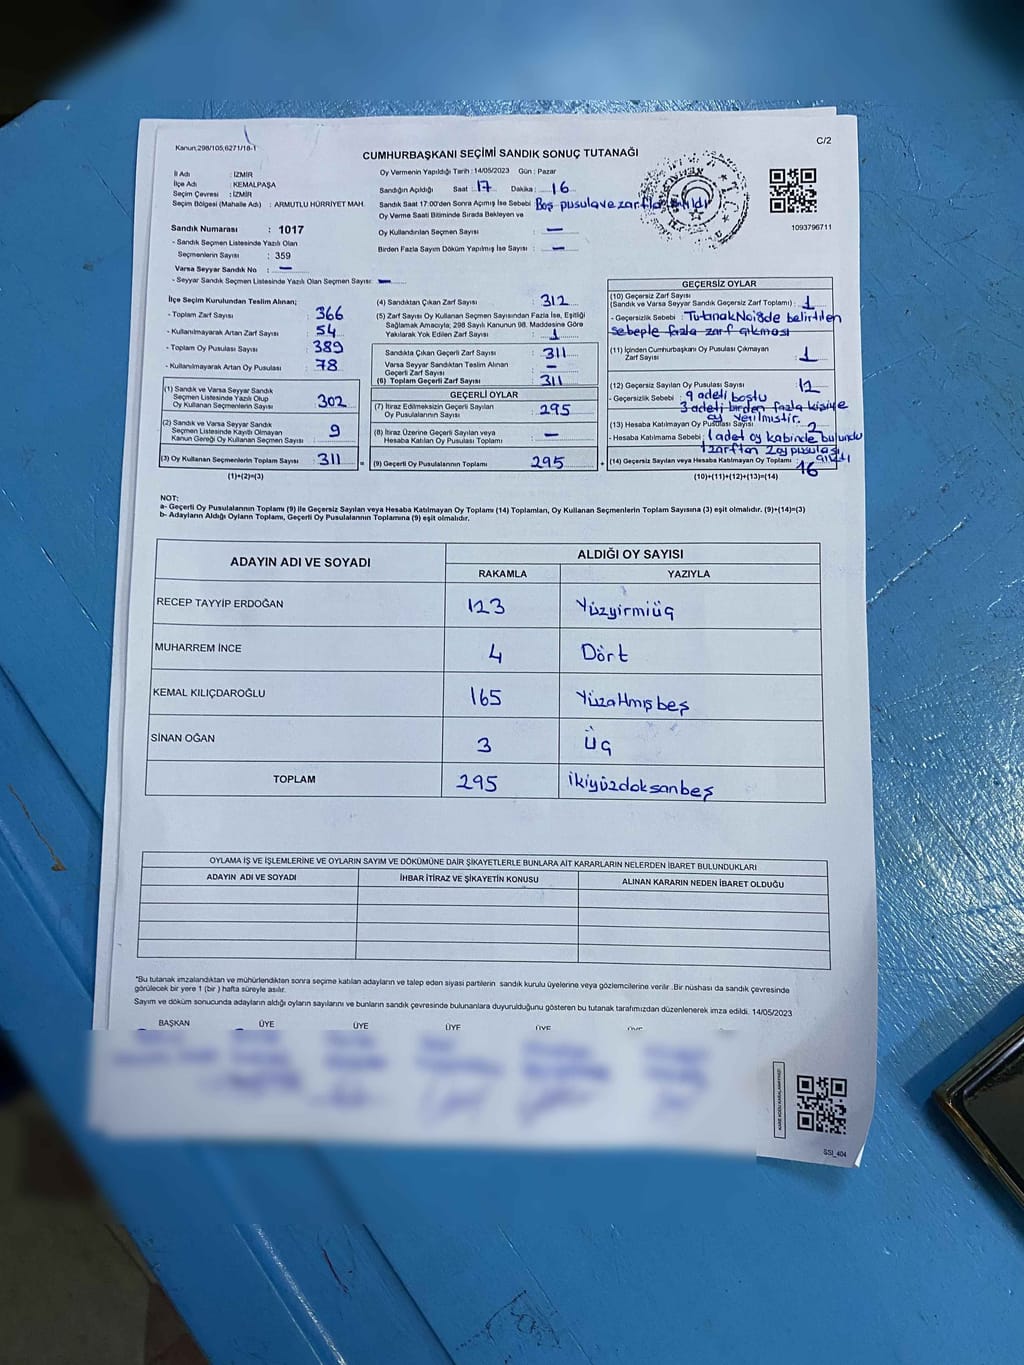 Kanun,298/105,6271/18-1
C/2
CUMHURBAŞKANI SEÇİMİ SANDIK SONUÇ TUTANAĞI
İl Adı : İZMİR
İlçe Adı : KEMALPAŞA
Seçim Çevresi : İZMİR
Seçim Bölgesi (Mahalle Adı) : ARMUTLU HÜRRİYET MAH.
Sandık Numarası : 1017
- Sandık Seçmen Listesinde Yazılı Olan
Seçmenlerin Sayısı : 359
Varsa Seyyar Sandık No : —
- Seyyar Sandık Seçmen Listesinde Yazılı Olan Seçmen Sayısı: —
Oy Vermenin Yapıldığı Tarih : 14/05/2023 Gün : Pazar
Sandığın Açıldığı Saat : 17 Dakika : 16
Sandık Saat 17:00'den Sonra Açılmış İse Sebebi : Boş pusula ve zarflar
Oy Verme Saati Bitiminde Sırada Bekleyen ve
Oy Kullandırılan Seçmen Sayısı : —
Birden Fazla Sayım Döküm Yapılmış İse Sayısı : —
1093796711
İlçe Seçim Kurulundan Teslim Alınan;
- Toplam Zarf Sayısı : 366
- Kullanılmayarak Artan Zarf Sayısı : 54
- Toplam Oy Pusulası Sayısı : 389
- Kullanılmayarak Artan Oy Pusulası : 78
(1) Sandık ve Varsa Seyyar Sandık
Seçmen Listesinde Yazılı Olup
Oy Kullanan Seçmenlerin Sayısı : 302
(2) Sandık ve Varsa Seyyar Sandık
Seçmen Listesinde Kayıtlı Olmayan
Kanun Gereği Oy Kullanan Seçmen Sayısı : 9
(3) Oy Kullanan Seçmenlerin Toplam Sayısı : 311 =
(1)+(2)=(3)
(4) Sandıktan Çıkan Zarf Sayısı : 312
(5) Zarf Sayısı Oy Kullanan Seçmen Sayısından Fazla İse, Eşitliği
Sağlamak Amacıyla; 298 Sayılı Kanunun 98. Maddesine Göre
Yakılarak Yok Edilen Zarf Sayısı : 1
Sandıkta Çıkan Geçerli Zarf Sayısı : 311
Varsa Seyyar Sandıktan Teslim Alınan
Geçerli Zarf Sayısı : —
(6) Toplam Geçerli Zarf Sayısı : 311
GEÇERLİ OYLAR
(7) İtiraz Edilmeksizin Geçerli Sayılan
Oy Pusulalarının Sayısı : 295
(8) İtiraz Üzerine Geçerli Sayılan veya
Hesaba Katılan Oy Pusulası Toplamı : —
(9) Geçerli Oy Pusulalarının Toplamı : 295 +
GEÇERSİZ OYLAR
(10) Geçersiz Zarf Sayısı
(Sandık ve Varsa Seyyar Sandık Geçersiz Zarf Toplamı) : 1
- Geçersizlik Sebebi : Tutanak No:8de belirtilen
sebeple fazla zarf çıkması
(11) İçinden Cumhurbaşkanı Oy Pusulası Çıkmayan
Zarf Sayısı : 1
(12) Geçersiz Sayılan Oy Pusulası Sayısı : 12
- Geçersizlik Sebebi : 9 adeti boştu
3 adeti birden fazla kişiye
oy verilmiştir.
(13) Hesaba Katılmayan Oy Pusulası Sayısı : 2
- Hesaba Katılmama Sebebi : 1 adet oy kabinde bulundu
1 zarftan 2 oy pusulası
çıktı
(14) Geçersiz Sayılan veya Hesaba Katılmayan Oy Toplamı : 16
(10)+(11)+(12)+(13)=(14)
NOT:
a- Geçerli Oy Pusulalarının Toplamı (9) ile Geçersiz Sayılan veya Hesaba Katılmayan Oy Toplamı (14) Toplamları, Oy Kullanan Seçmenlerin Toplam Sayısına (3) eşit olmalıdır. (9)+(14)=(3)
b- Adayların Aldığı Oyların Toplamı, Geçerli Oy Pusulalarının Toplamına (9) eşit olmalıdır.
ADAYIN ADI VE SOYADI ALDIĞI OY SAYISI
RAKAMLA YAZIYLA
RECEP TAYYİP ERDOĞAN 123 Yüzyirmiüç
MUHARREM İNCE 4 Dört
KEMAL KILIÇDAROĞLU 165 Yüzaltmışbeş
SİNAN OĞAN 3 üç
TOPLAM 295 ikiyüzdoksanbeş
OYLAMA İŞ VE İŞLEMLERİNE VE OYLARIN SAYIM VE DÖKÜMÜNE DAİR ŞİKAYETLERLE BUNLARA AİT KARARLARIN NELERDEN İBARET BULUNDUKLARI
ADAYIN ADI VE SOYADI İHBAR İTİRAZ VE ŞİKAYETİN KONUSU ALINAN KARARIN NEDEN İBARET OLDUĞU
*Bu tutanak imzalandıktan ve mühürlendikten sonra seçime katılan adayların ve talep eden siyasi partilerin sandık kurulu üyelerine veya gözlemcilerine verilir .Bir nüshası da sandık çevresinde
görülecek bir yere 1 (bir ) hafta süreyle asılır.
Sayım ve döküm sonucunda adayların aldığı oyların sayılarını ve bunların sandık çevresinde bulunanlara duyurulduğunu gösteren bu tutanak tarafımızdan düzenlenerek imza edildi. 14/05/2023
BAŞKAN ÜYE ÜYE ÜYE ÜYE ÜYE
KARE KODU KARALAMAYINIZ!
SSI_404